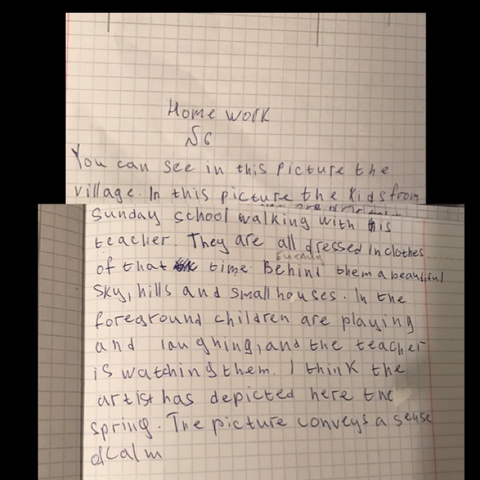 Home work
№6
You can see in this picture the
village. In this picture the kids from
Sunday school walking with his
teacher. They are all dressed in clothes
of that time Behind them a beautiful
sky, hills and small houses. In the
foreground children are playing
and laughing, and the teacher
is watching them. I think the
artist has depicted here the
spring. The picture conveys a sense
of calm